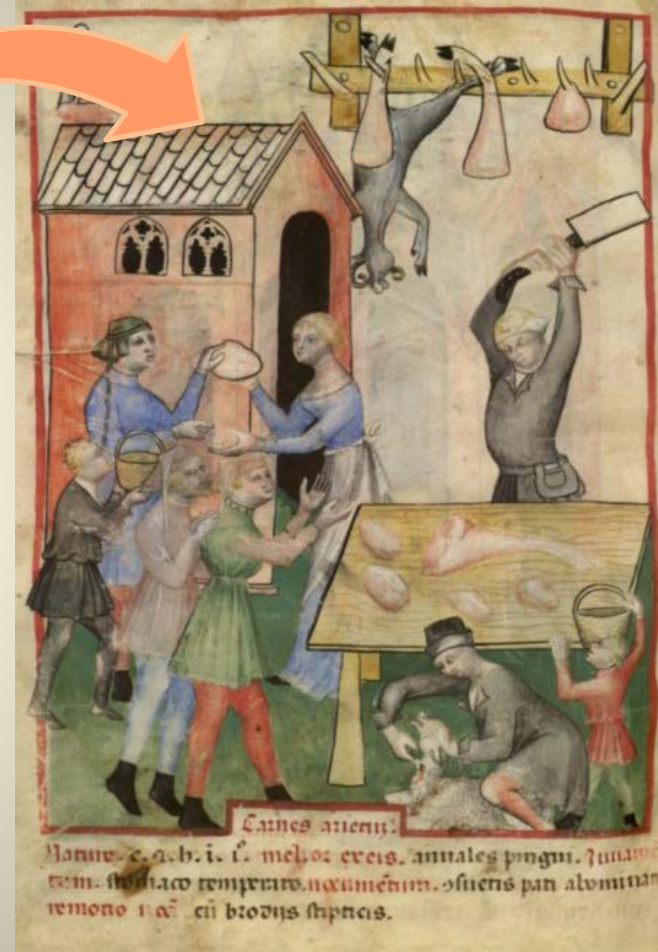 Carnes arietum:
Nature. c. 2. h. i. i°. melior ex eis. annuales pingui. Juuam
tum. stomaco temperato. nocumentum. osuetis pati abominat
remotio nocti cū brodijs stipticis.